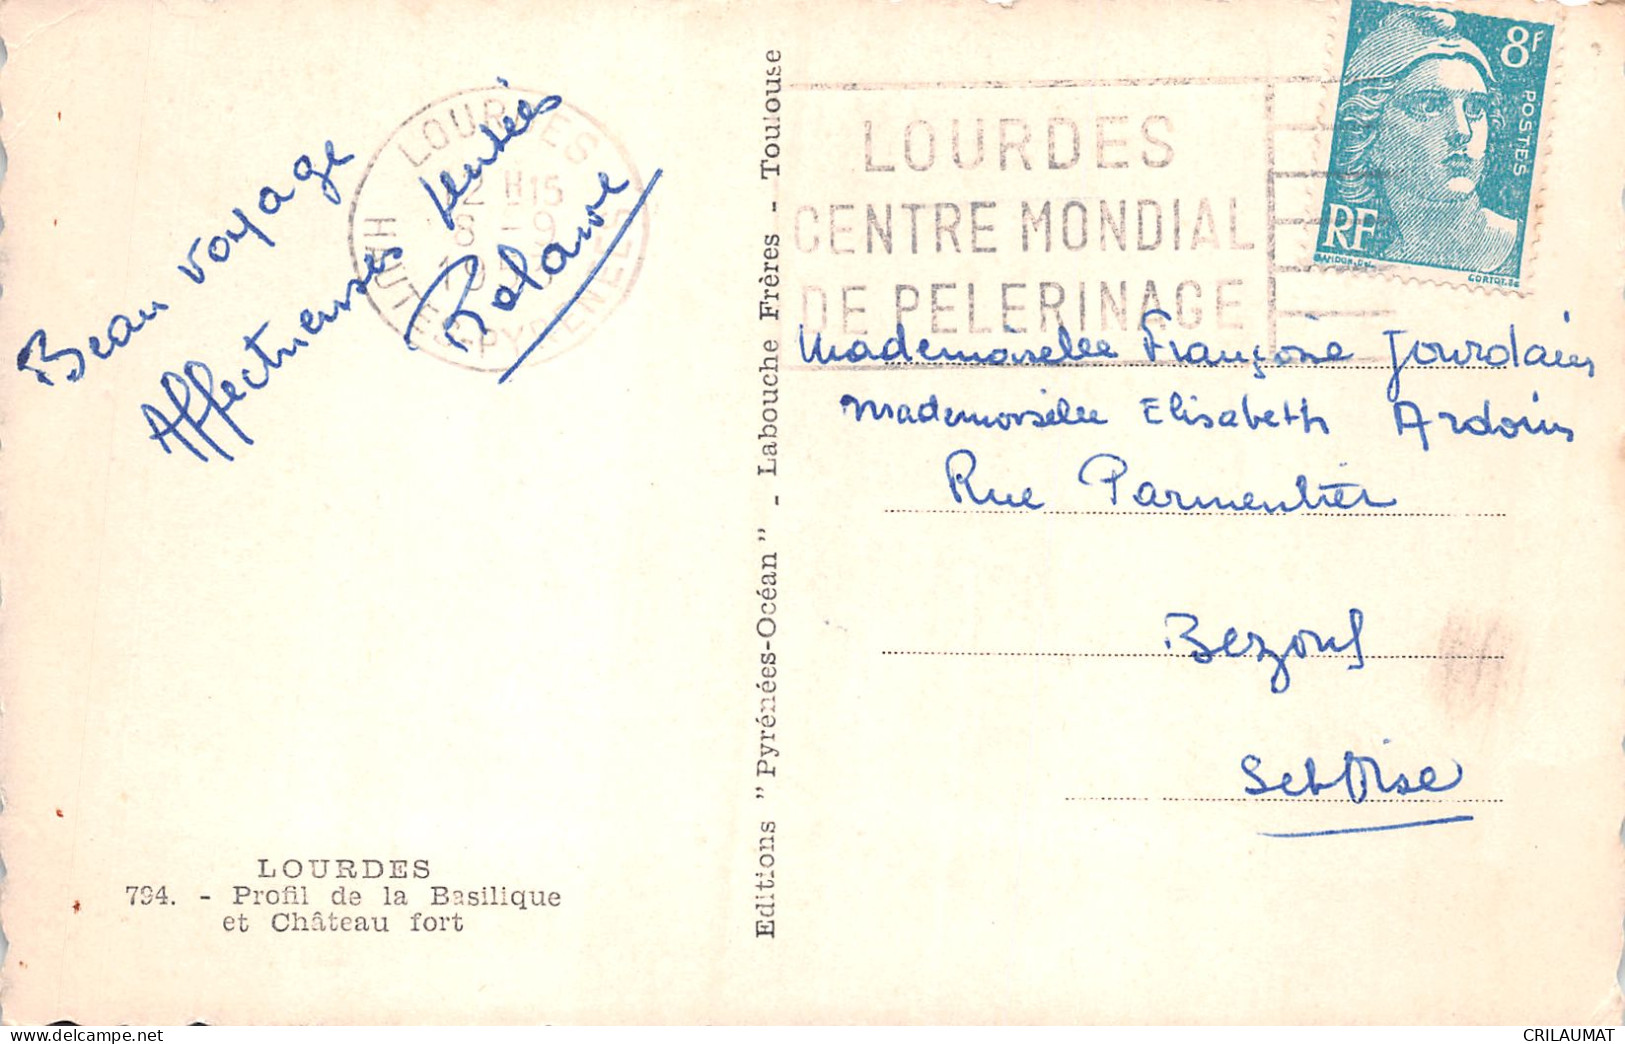 Beau voyage
Affectueuses pensées
Rolande
LOURDES
HAUTES-PYRENEES
12 H15
8 - 9
LOURDES
CENTRE MONDIAL
DE PELERINAGE
8F
POSTES
RF
GANDON.DEL.
CORTOT.SC
Mademoiselle Françoise Jourdain
Mademoiselle Elisabeth Ardoin
Rue Parmentier
Bezons
Set Oise
Editions "Pyrénées-Océan" - Labouche Frères - Toulouse
LOURDES
794. - Profil de la Basilique
et Château fort
CRILAUMAT